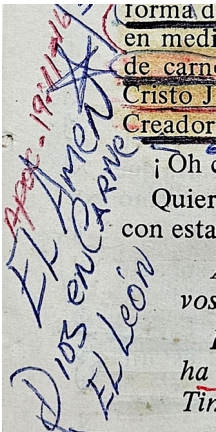 forma d
en medi
de carne
Cristo J
Creador
¡ Oh
Quier
con esta
vos
ha
Tin
EL AMEN
DIOS en CARNE
EL León